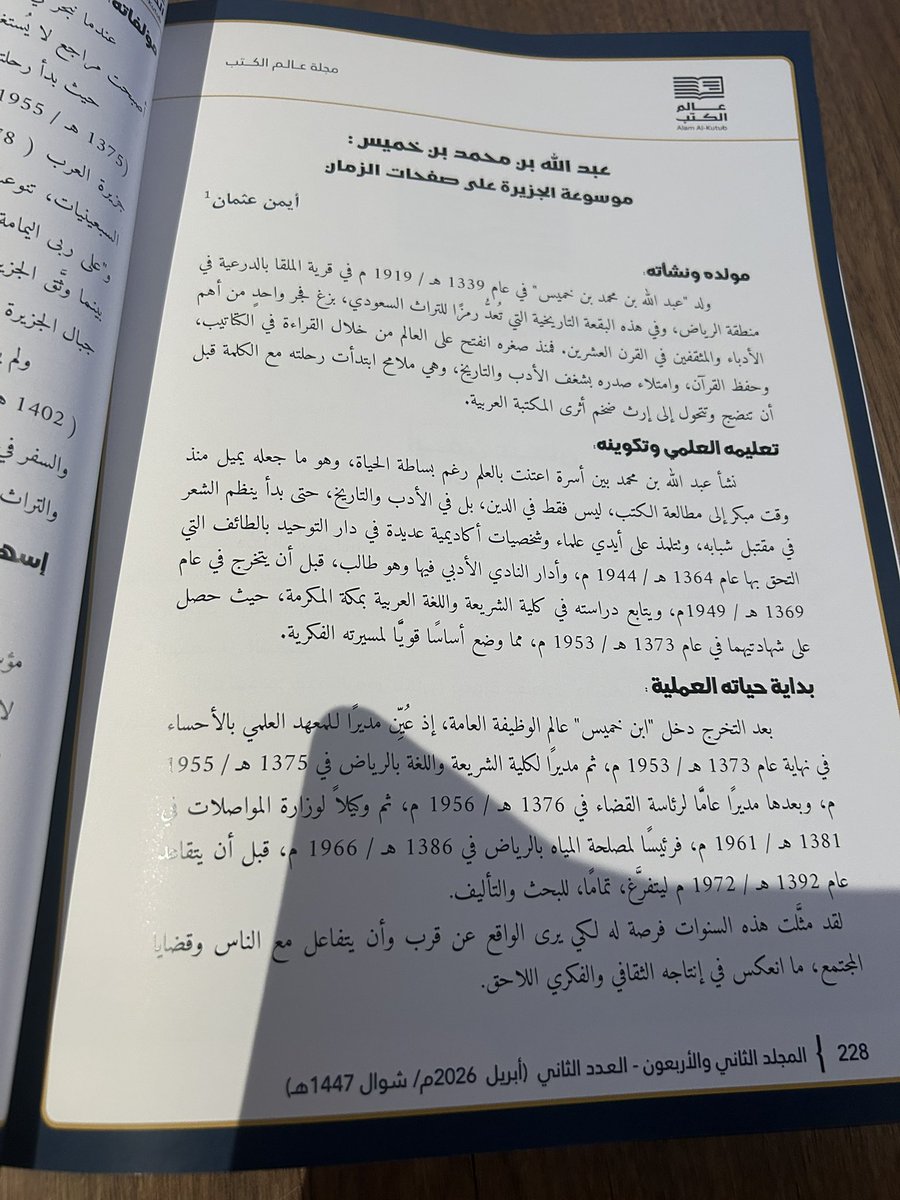 مجلة عالم الكتب
عالم
الكتب
Alam Al-Kutub
عبد الله بن محمد بن خميس :
موسوعة الجزيرة على صفحات الزمان
أيمن عثمان1
مولده ونشأته:
ولد "عبد الله بن محمد بن خميس" في عام 1339 هـ / 1919 م في قرية الملقا بالدرعية في
منطقة الرياض، وفي هذه البقعة التاريخية التي تُعدُّ رمزًا للتراث السعودي، بزغ فجر واحدٍ من أهم
الأدباء والمثقفين في القرن العشرين. فمنذ صغره انفتح على العالم من خلال القراءة في الكتاتيب،
وحفظ القرآن، وامتلاء صدره بشغف الأدب والتاريخ، وهي ملامح ابتدأت رحلته مع الكلمة قبل
أن تنضج وتتحول إلى إرث ضخم أثرى المكتبة العربية.
تعليمه العلمي وتكوينه:
نشأ عبد الله بن محمد بين أسرة اعتنت بالعلم رغم بساطة الحياة، وهو ما جعله يميل منذ
وقت مبكر إلى مطالعة الكتب، ليس فقط في الدين، بل في الأدب والتاريخ، حتى بدأ ينظم الشعر
في مقتبل شبابه، وتتلمذ على أيدي علماء وشخصيات أكاديمية عديدة في دار التوحيد بالطائف التي
التحق بها عام 1364 هـ / 1944 م، وأدار النادي الأدبي فيها وهو طالب، قبل أن يتخرج في عام
1369 هـ / 1949م، ويتابع دراسته في كلية الشريعة واللغة العربية بمكة المكرمة، حيث حصل
على شهادتيهما في عام 1373 هـ / 1953 م، مما وضع أساسًا قويًّا لمسيرته الفكرية.
بداية حياته العملية :
بعد التخرج دخل "ابن خميس" عالم الوظيفة العامة، إذ عُيِّن مديرًا للمعهد العلمي بالأحساء
في نهاية عام 1373 هـ / 1953 م، ثم مديرًا لكلية الشريعة واللغة بالرياض في 1375 هـ / 1955
م، وبعدها مديرًا عامًّا لرئاسة القضاء في 1376 هـ / 1956 م، ثم وكيلاً لوزارة المواصلات في
1381 هـ / 1961 م، فرئيسًا لمصلحة المياه بالرياض في 1386 هـ / 1966 م، قبل أن يتقاعد
عام 1392 هـ / 1972 م ليتفرَّغ، تمامًا، للبحث والتأليف.
لقد مثَّلت هذه السنوات فرصة له لكي يرى الواقع عن قرب وأن يتفاعل مع الناس وقضايا
المجتمع، ما انعكس في إنتاجه الثقافي والفكري اللاحق.
228 { المجلد الثاني والأربعون - العدد الثاني (أبريل 2026م/ شوال 1447هـ)
مؤلفاته
عندما نجر
أصبحت مراجع لا
حيث بدأ رحلته
(1375 هـ / 1955
جزيرة العرب (
السبعينيات، تنوعت
و"على ربى اليمامة
بينما وثَّق الجزيرة
جبال الجزيرة
( 1402 هـ
والسفر في
والتراث